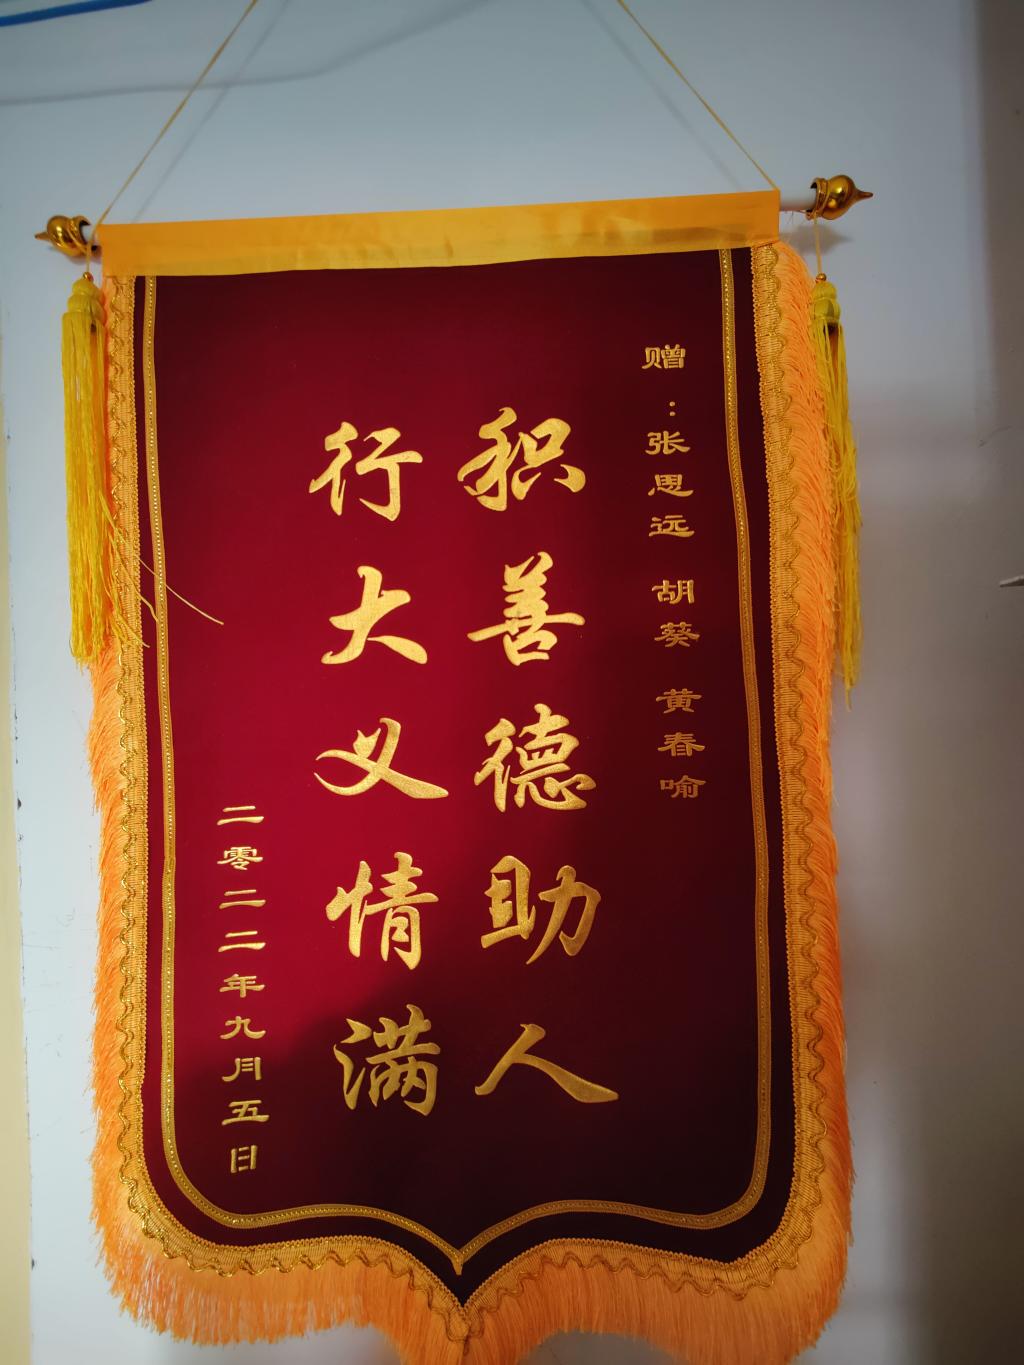 赠：张思远 胡葵 黄春喻
积善德助人
行大义情满
二零二二年九月五日